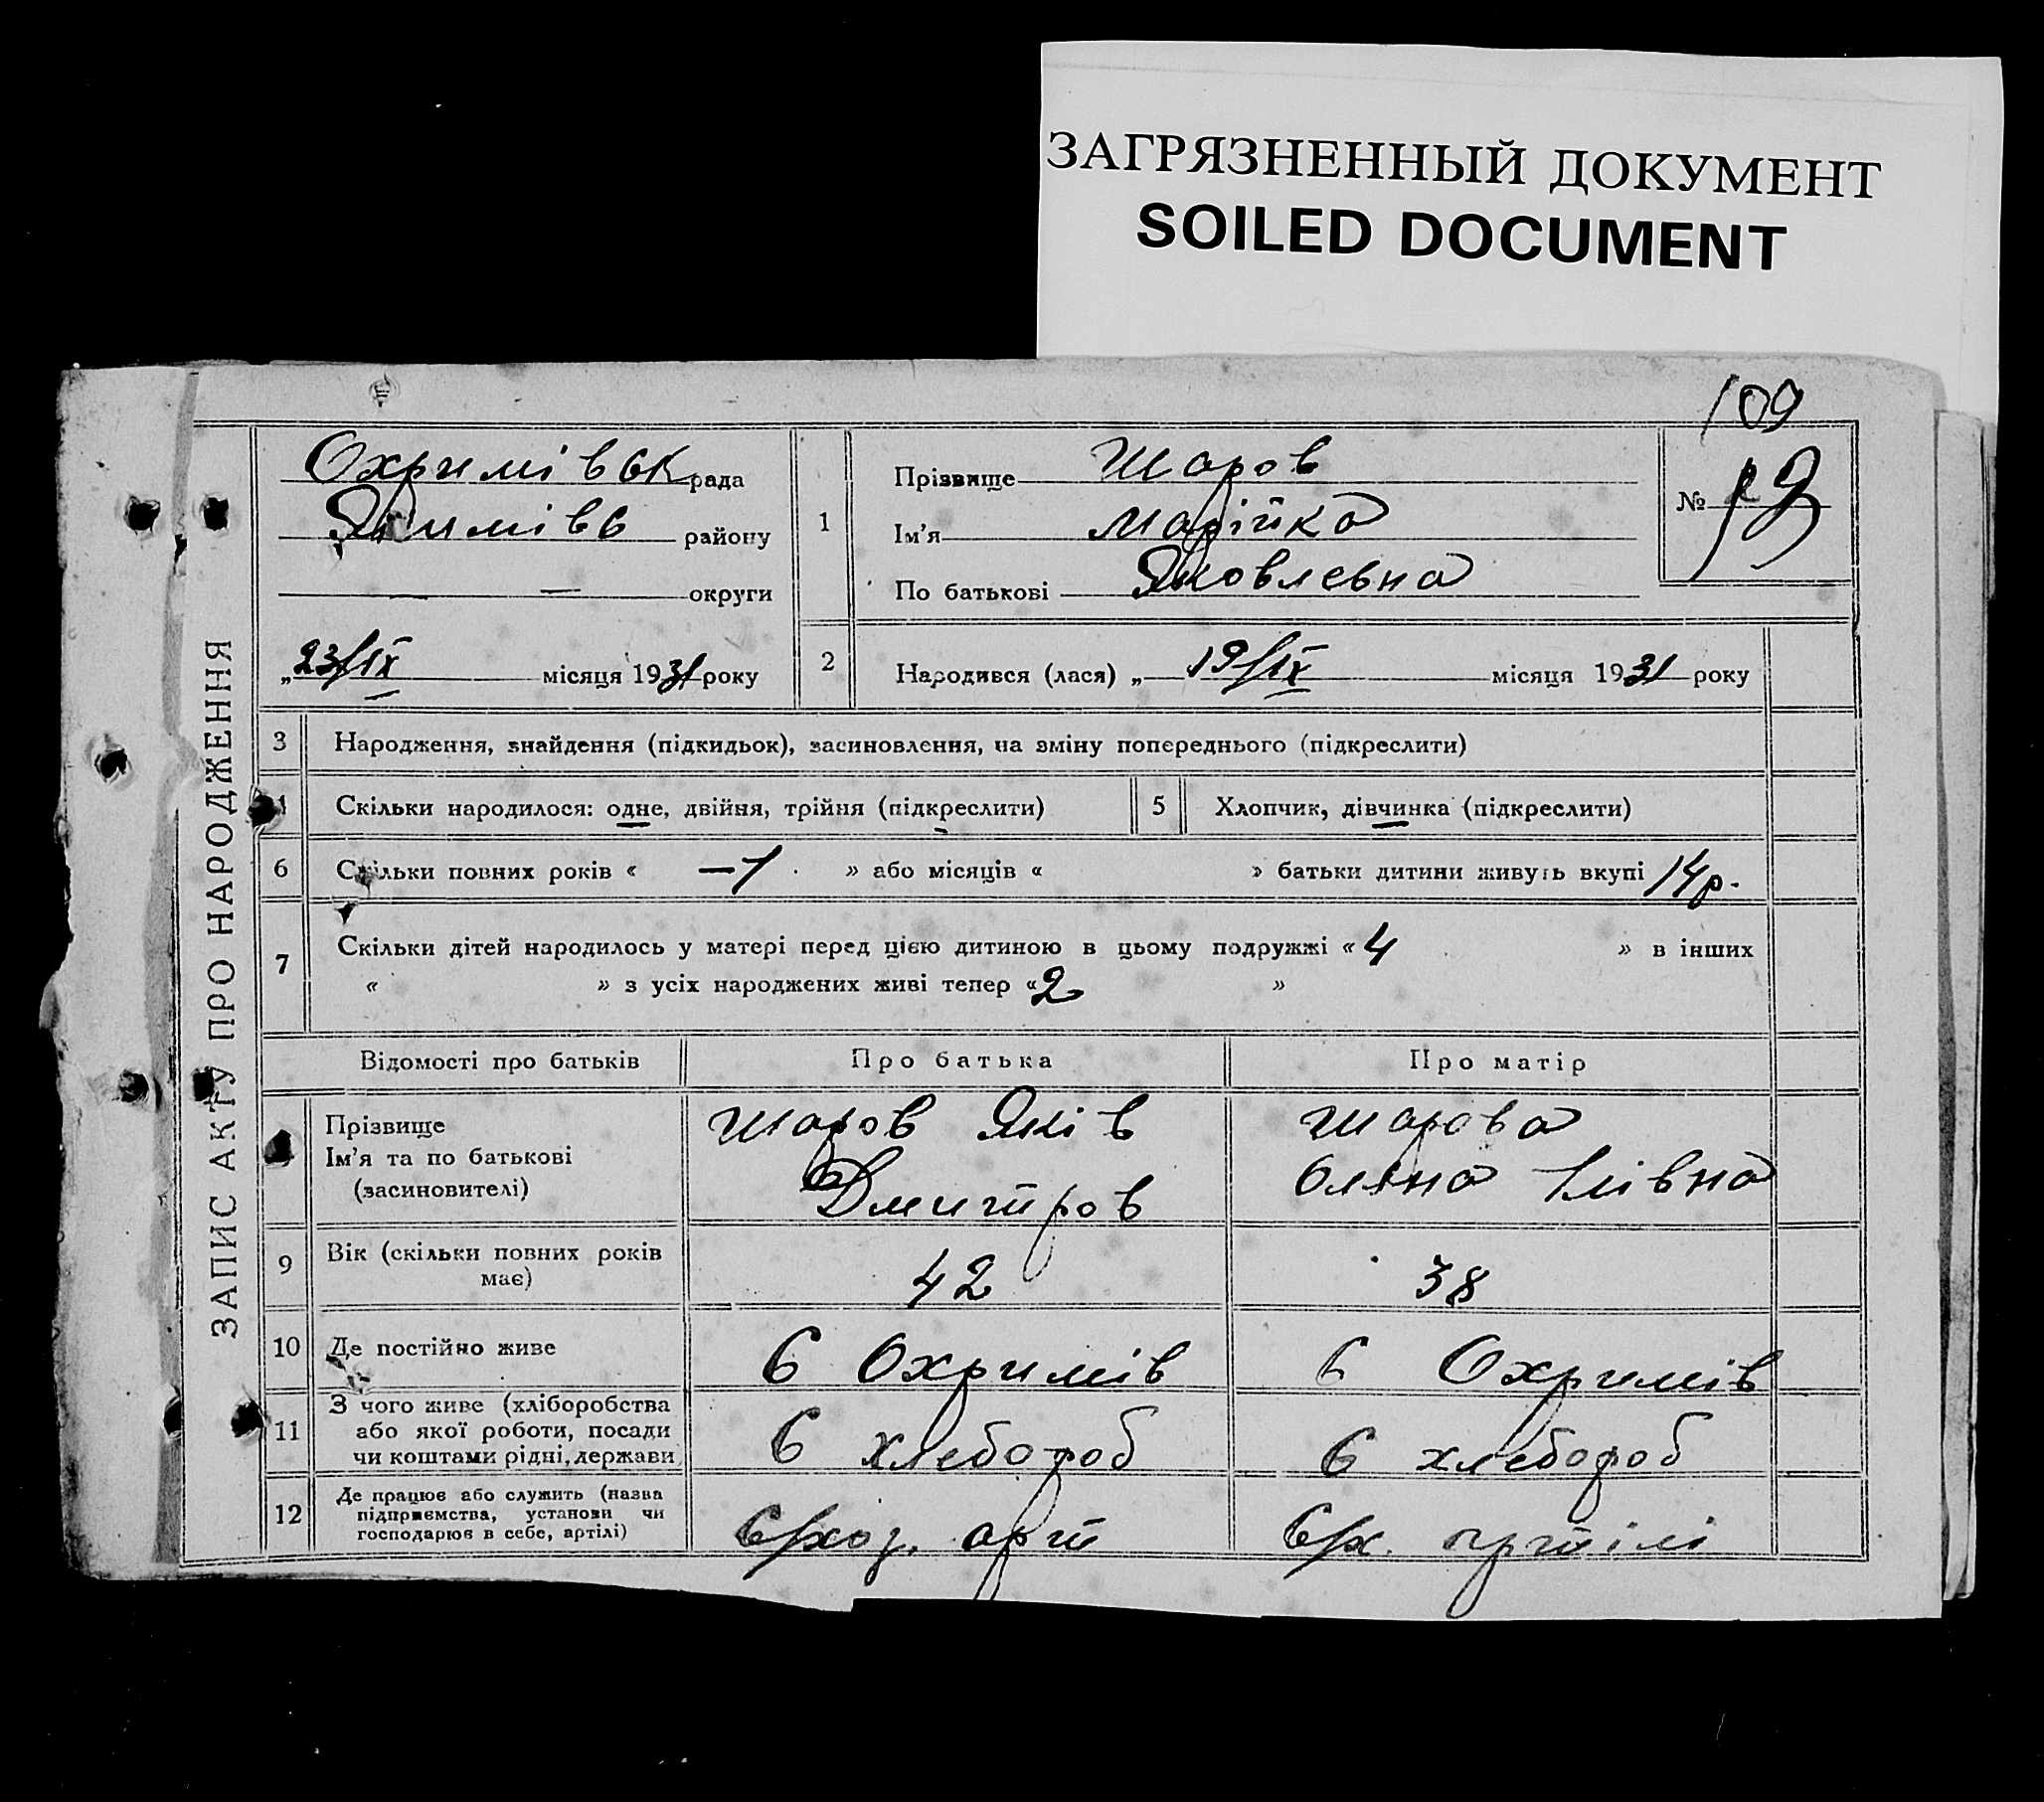 ЗАГРЯЗНЕННЫЙ ДОКУМЕНТ
SOILED DOCUMENT
109
ЗАПИС АКТУ ПРО НАРОДЖЕННЯ
Охримівськ рада
Якимівс району
— — округи
„23/IX місяця 1931 року
1
Прізвище Шаров
Ім'я Марійка
По батькові Яковлевна
№
2
Народився (лася) „ 19/IX місяця 1931 року
3 Народження, знайдення (підкидьок), засиновлення, на зміну попереднього (підкреслити)
Скільки народилося: одне, двійня, трійня (підкреслити)
5 Хлопчик, дівчинка (підкреслити)
6 Скільки повних років « » або місяців « » батьки дитини живуть вкупі 14 р.
7 Скільки дітей народилось у матері перед цією дитиною в цьому подружжі «4 » в інших
« » з усіх народжених живі тепер «2 »
Відомості про батьків Про батька Про матір
Прізвище
Ім'я та по батькові
(засиновителі)
Шаров Яків
Дмитров
Шарова
Оляна Ілівна
9 Вік (скільки повних років
має)
42
38
10 Де постійно живе
с Охримів
с Охримів
11 З чого живе (хліборобства
або якої роботи, посади
чи коштами рідні, держави
с хлебороб
с хлебороб
12 Де працює або служить (назва
підприємства, установи чи
господарює в себе, артілі)
с/хоз. арт
с/х. артілі